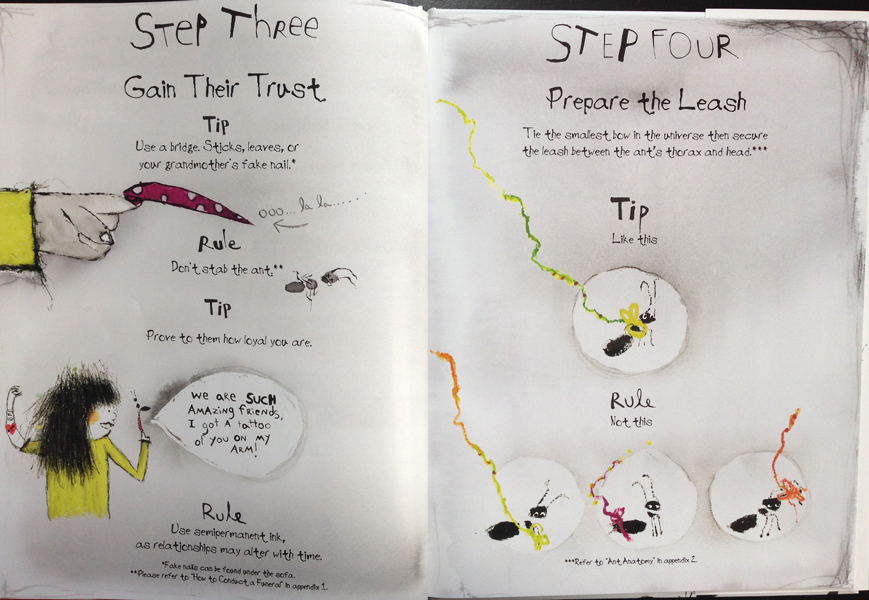 STEP THREE
Gain Their Trust
Tip
Use a bridge. Sticks, leaves, or
your grandmother's fake nail.*
ooo... la la......
Rule
Don't stab the ant.**
Tip
Prove to them how loyal you are.
WE ARE SUCH
AMAZING FRIENDS,
I GOT A TATTOO
OF YOU ON MY
ARM!
Rule
Use semipermanent ink,
as relationships may alter with time.
*Fake nails can be found under the sofa.
**Please refer to "How to Conduct a Funeral" in appendix 1.
STEP FOUR
Prepare the Leash
Tie the smallest bow in the universe then secure
the leash between the ant's thorax and head.***
Tip
Like this
Rule
Not this
***Refer to "Ant Anatomy" in appendix 2.